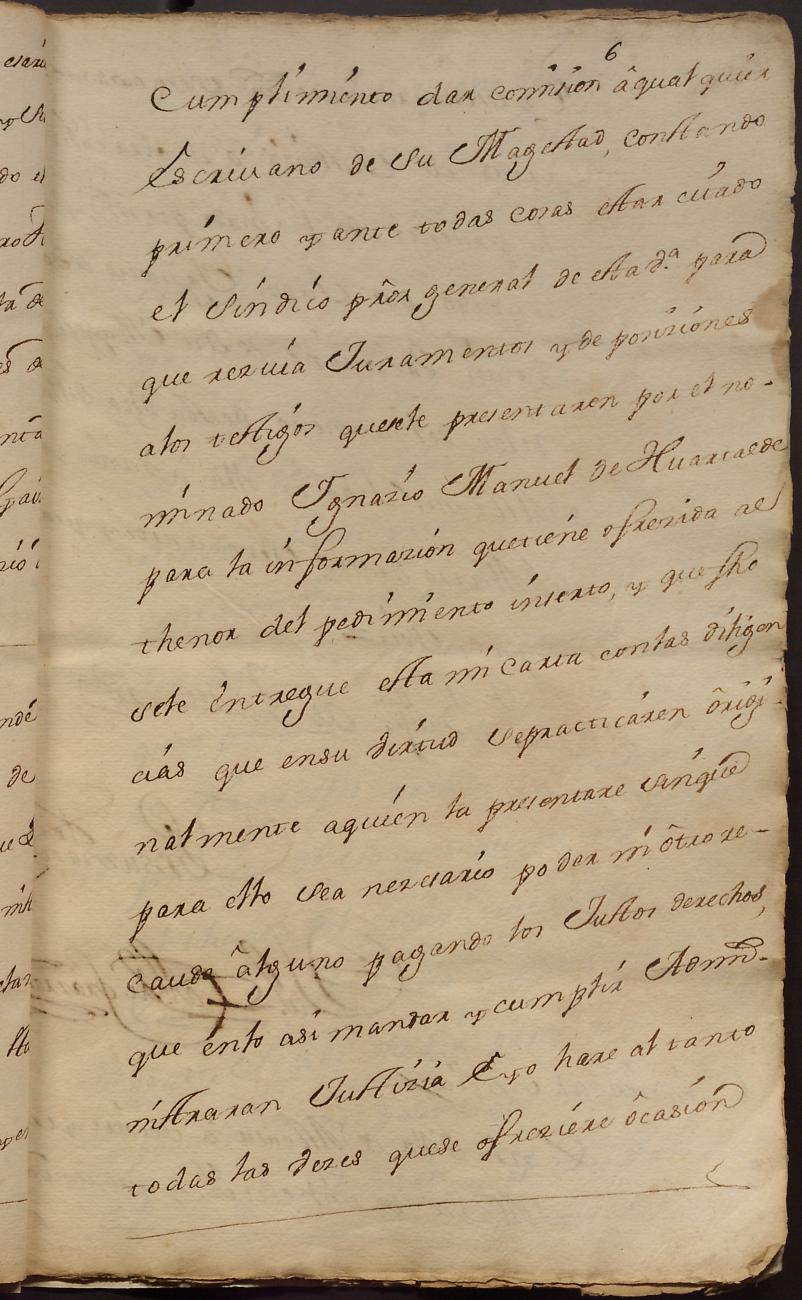 6
Cumplimiento dar comision â qual quier
Escriuano de su Magestad, constando
primero y ante todas cosas estar ciuado
el Sindico prôr general de esta dha. para
que rezuia Juramentos y de posiziones
alos testigos quesele presentaren por el no-
minado Ygnazio Manuel de Huartaede
para la informazion quetiene ofrezida al
thenor del pedimiento inserto, y que fho
sele entregue esta mi carta conlas diligen
cias que ensu virtud sepracticaren ôrigi-
nalmente aquien la presentare sinque
para ello sea nezesario poder ni ôtro re-
caudo âlguno pagando los Justos derechos,
que enlo asi mandar y cumplir Admi-
nistraran Justizia E yo hare al tanto
todas las vezes quese ofreziere ôcasion